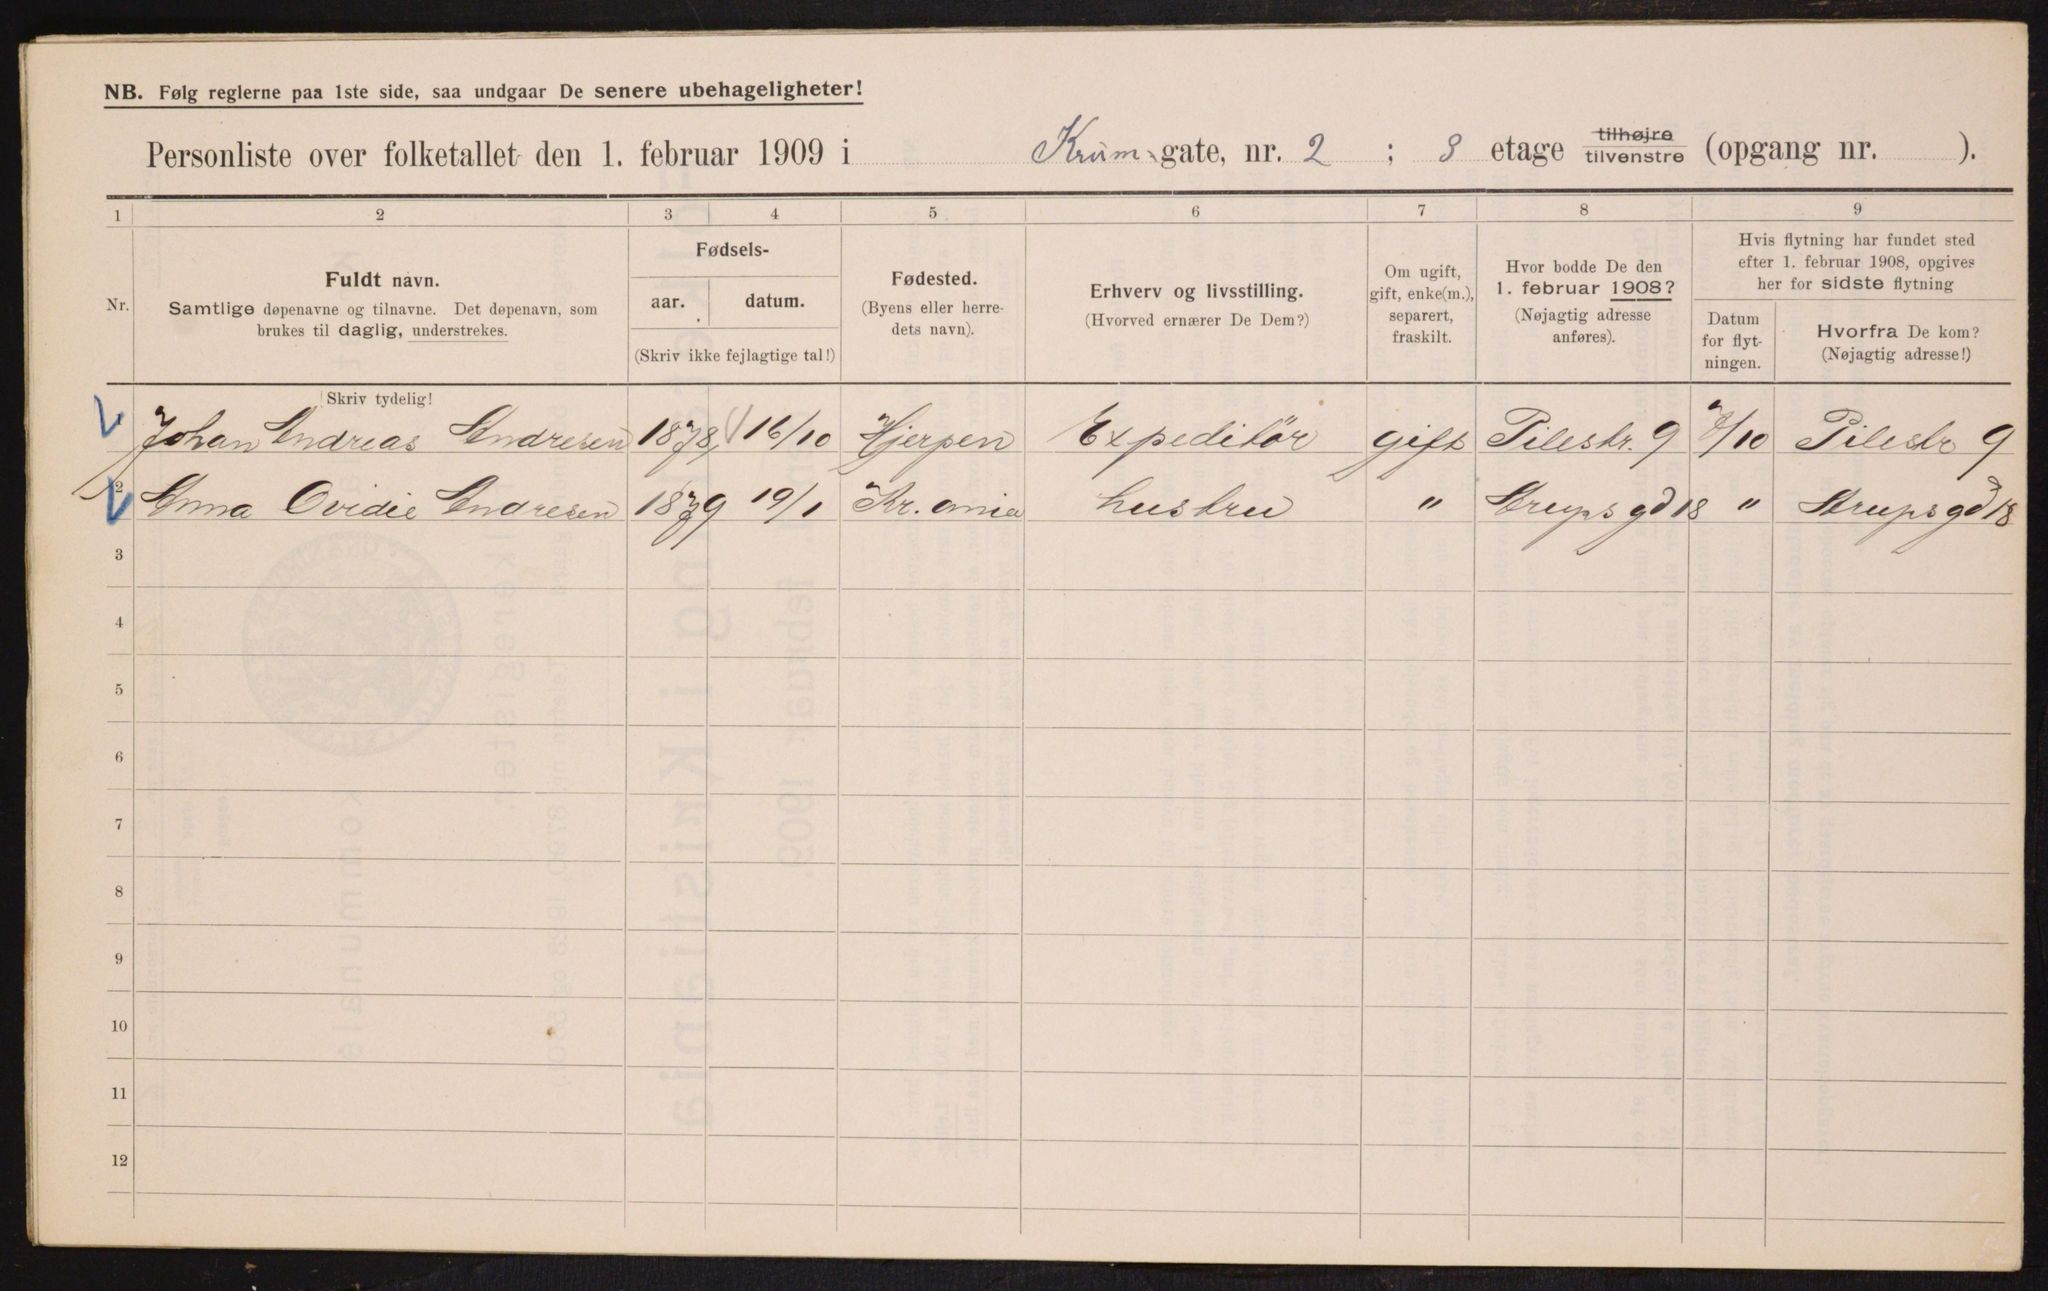 NB. Følg reglerne paa 1ste side, saa undgaar De senere ubehageligheter!
Personliste over folketallet den 1. februar 1909 i Krum gate, nr. 2 ; 3 etage tilhøjre tilvenstre (opgang nr. ).
1 2 3 4 5 6 7 8 9
Nr.
Fuldt navn.
Samtlige døpenavne og tilnavne. Det døpenavn, som
brukes til daglig, understrekes.
Fødsels-
aar. datum.
(Skriv ikke fejlagtige tal!)
Fødested.
(Byens eller herre-
dets navn).
Erhverv og livsstilling.
(Hvorved ernærer De Dem?)
Om ugift,
gift, enke(m.),
separert,
fraskilt.
Hvor bodde De den
1. februar 1908?
(Nøjagtig adresse
anføres).
Hvis flytning har fundet sted
efter 1. februar 1908, opgives
her for sidste flytning
Datum
for flyt-
ningen.
Hvorfra De kom?
(Nøjagtig adresse!)
Skriv tydelig!
Johan Andreas Andresen 1878 16/10 Hjerpen Expeditör gift Pilestr. 9 /10 Pilestr 9
2 Anna Ovidie Andresen 1879 19/1 Kr. ania hustru " Strupsgd 18 " Strupsgd 18
3
4
5
6
7
8
9
10
11
12